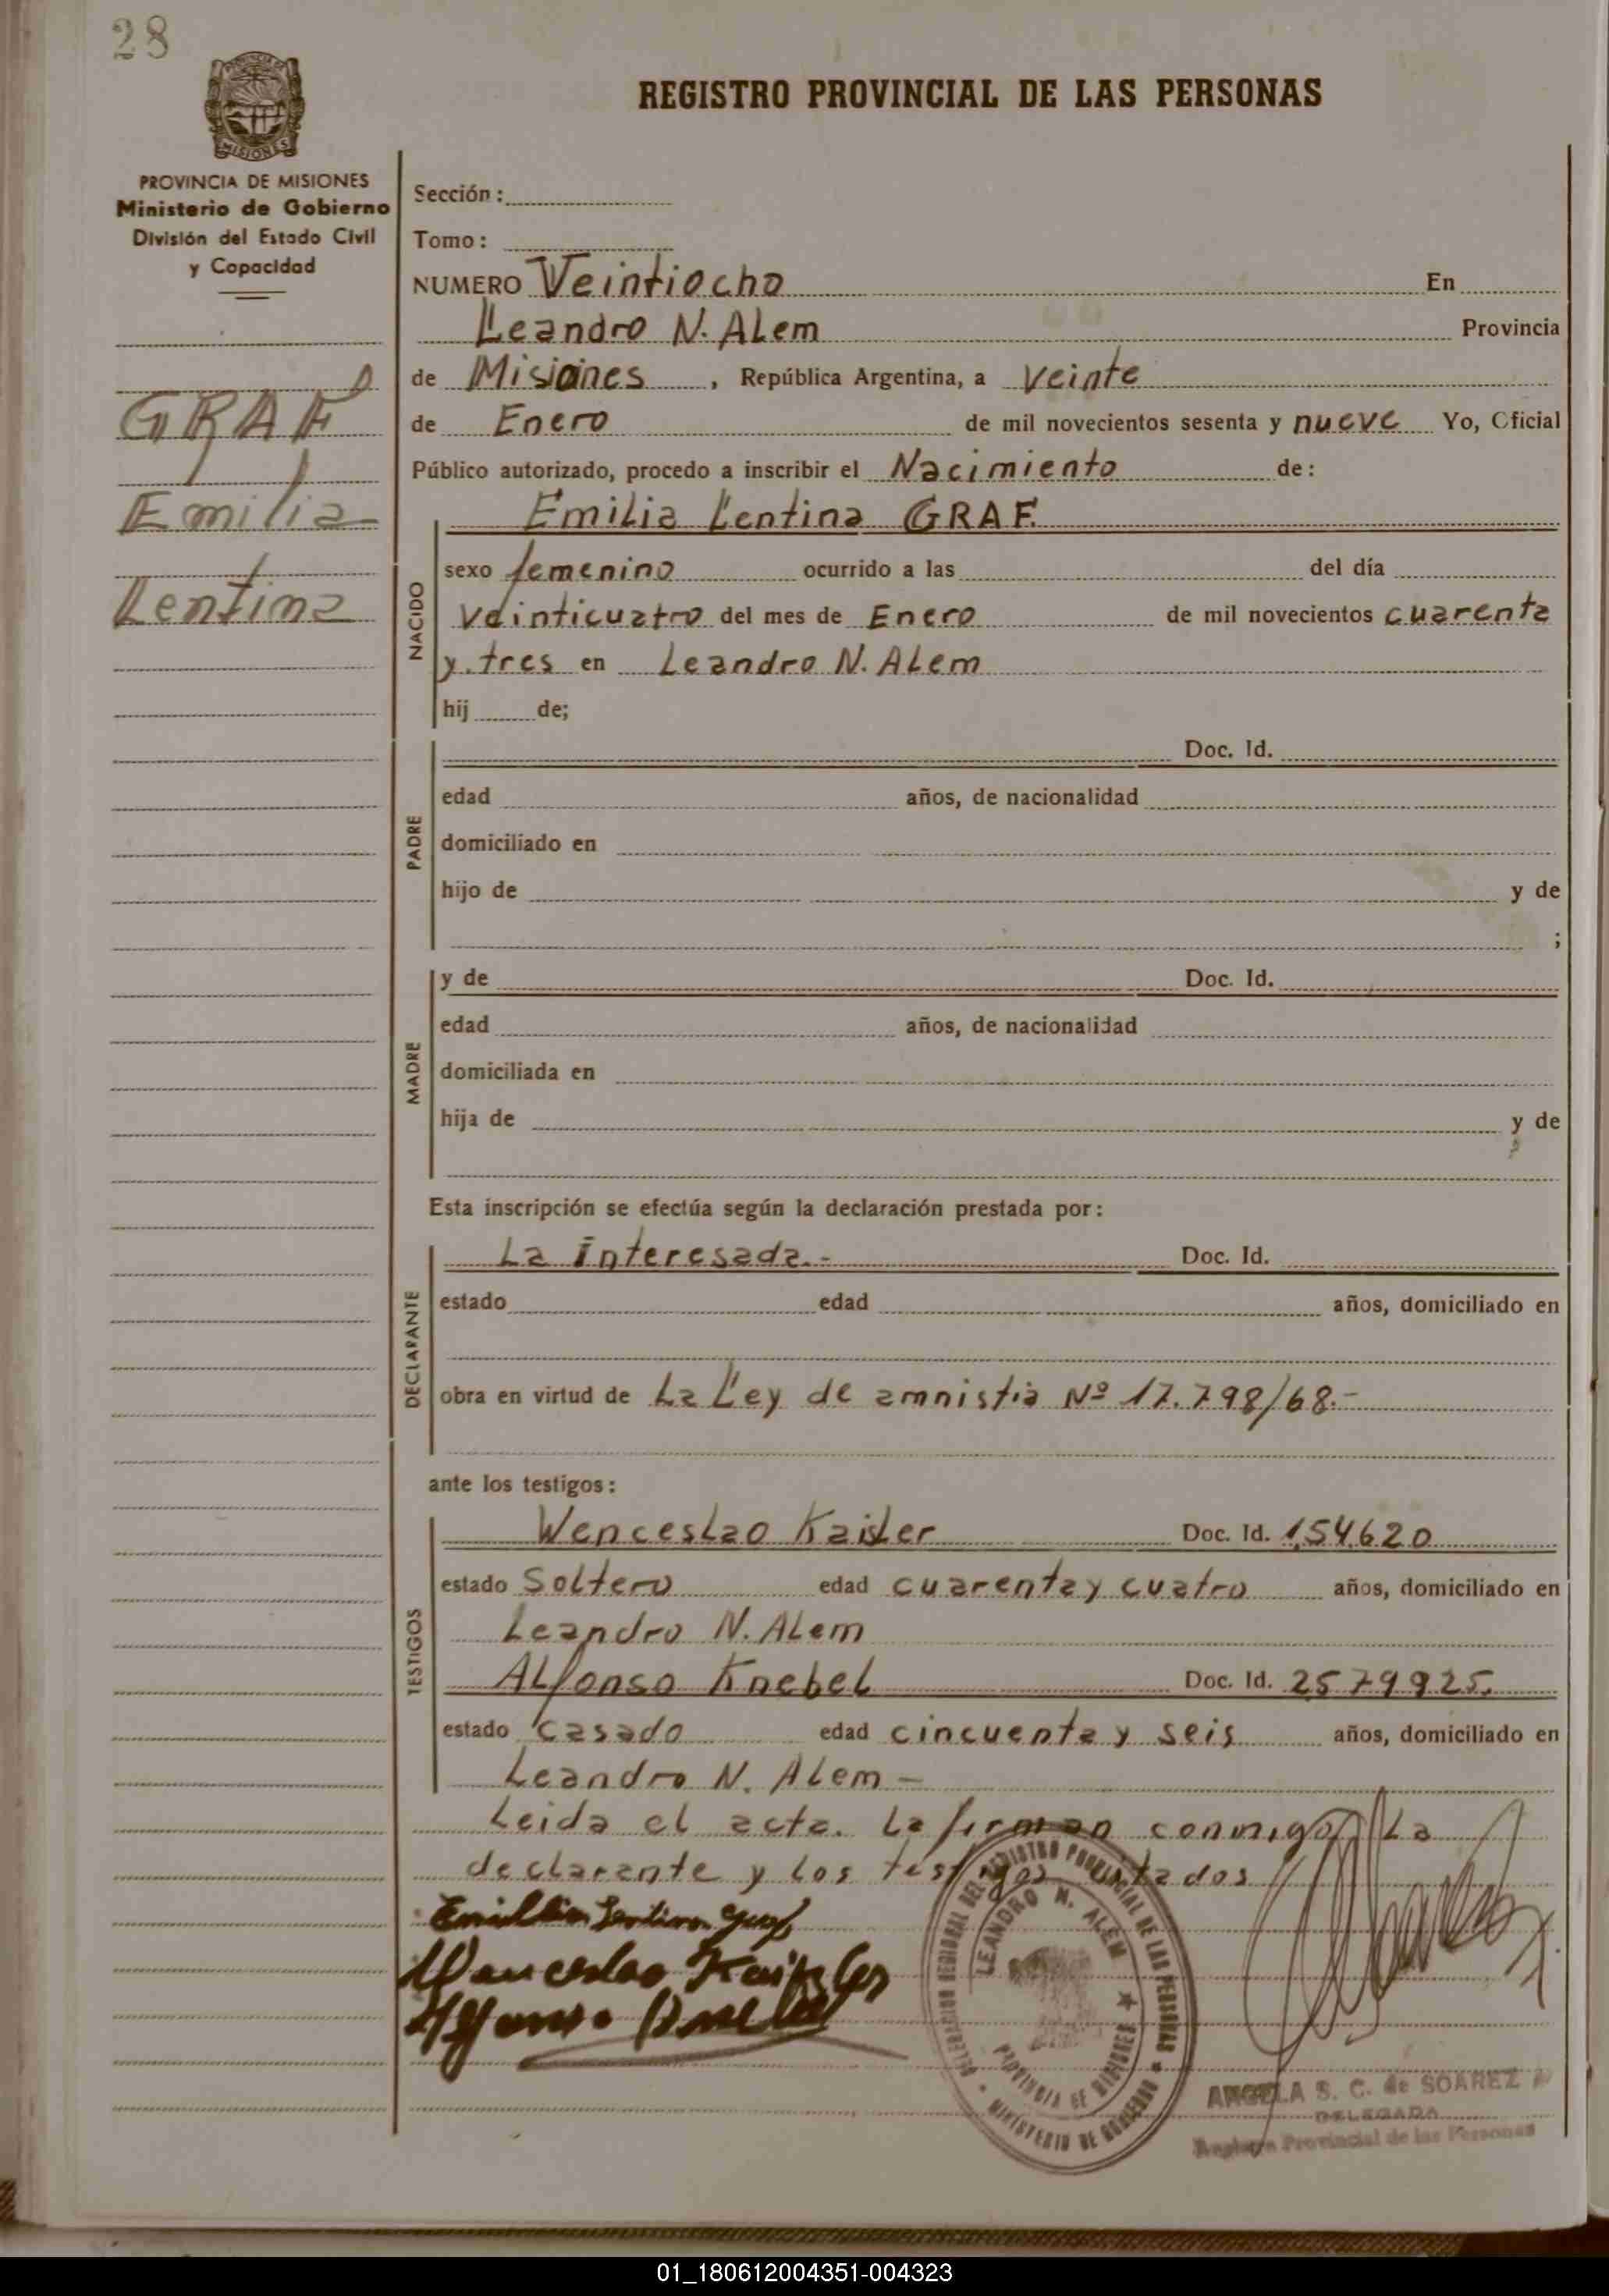 28
MISIONES
REGISTRO PROVINCIAL DE LAS PERSONAS
PROVINCIA DE MISIONES
Ministerio de Gobierno
División del Estado Civil
y Capacidad
GRAF
Emilia
Lentina
Sección :
Tomo :
NUMERO Veintiocho En
Leandro N. Alem Provincia
de Misiones , República Argentina, a veinte
de Enero de mil novecientos sesenta y nueve Yo, Oficial
Público autorizado, procedo a inscribir el Nacimiento de :
Emilia Lentina GRAF
NACIDO
sexo femenino ocurrido a las del día
veinticuatro del mes de Enero de mil novecientos cuarenta
y tres en Leandro N. Alem
hij de;
PADRE
Doc. Id.
edad años, de nacionalidad
domiciliado en
hijo de y de
;
MADRE
y de Doc. Id.
edad años, de nacionalidad
domiciliada en
hija de y de
Esta inscripción se efectúa según la declaración prestada por :
DECLARANTE
La interesada.- Doc. Id.
estado edad años, domiciliado en
obra en virtud de La Ley de amnistia Nº 17.798/68.-
ante los testigos :
TESTIGOS
Wenceslao Kaisler Doc. Id. 1,54.620
estado Soltero edad cuarenta y cuatro años, domiciliado en
Leandro N. Alem
Alfonso Knebel Doc. Id. 2579925.
estado casado edad cincuenta y seis años, domiciliado en
Leandro N. Alem -
Leida el acta. La firman conmigo, La
declarante y los testigos citados
Emilia Lentina Graf
Wenceslao Kaisler
Alfonso Knebel
DELEGACION REGIONAL DEL REGISTRO PROVINCIAL DE LAS PERSONAS
MINISTERIO DE GOBIERNO
LEANDRO N. ALEM
PROVINCIA DE MISIONES
ANGELA S. C. de SOAREZ
DELEGADA
Registro Provincial de las Personas
01_180612004351-004323